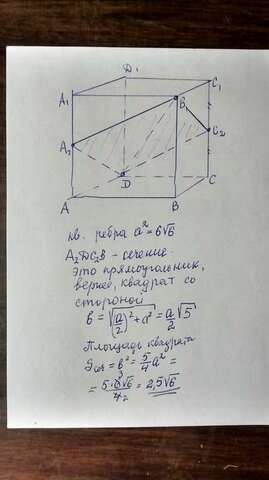 D₁
C₁
A₁
B₁
C₂
A₂
D
C
A
B
кв. ребра a² = 6√6
A₂DC₂B - сечение.
это прямоугольник,
вернее, квадрат со
стороной
b = √((a/2)² + a²) = a/2 √5
Площадь квадрата
= b² = 5/4 a² =
= 2,5√6